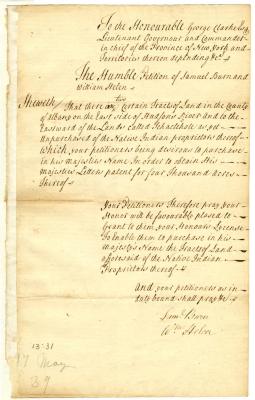 To the Honourable George Clarke Esq.
Lieutenant Governour and Commander
in chief of the Province of New York and
Territories thereon depending &c.
The Humble Petition of Samuel Burn and
William Helen
Sheweth That there are two Certain Tracts of Land in the County
of Albany on the East side of Hudsons River and to the
Eastward of the Lands called Schachtekole as yet
Unpurchased of the Native Indian proprietors thereof
Which, your petitioners being desirous to purchase
in his Majestys Name In order to obtain His
Majesties Letters patent for four Thousand acres
thereof
Your Petitioners Therefore pray your
Honor will be favourable pleased to
Grant to them your Honours License
To Enable them to purchase in his
Majestys Name the Tracts of Land
aforesaid of the Native Indian
Proprietors thereof
And your petitioners as in
duty bound shall pray &c.
Sam. Burn
Wm Helen
13:31
17 May
39